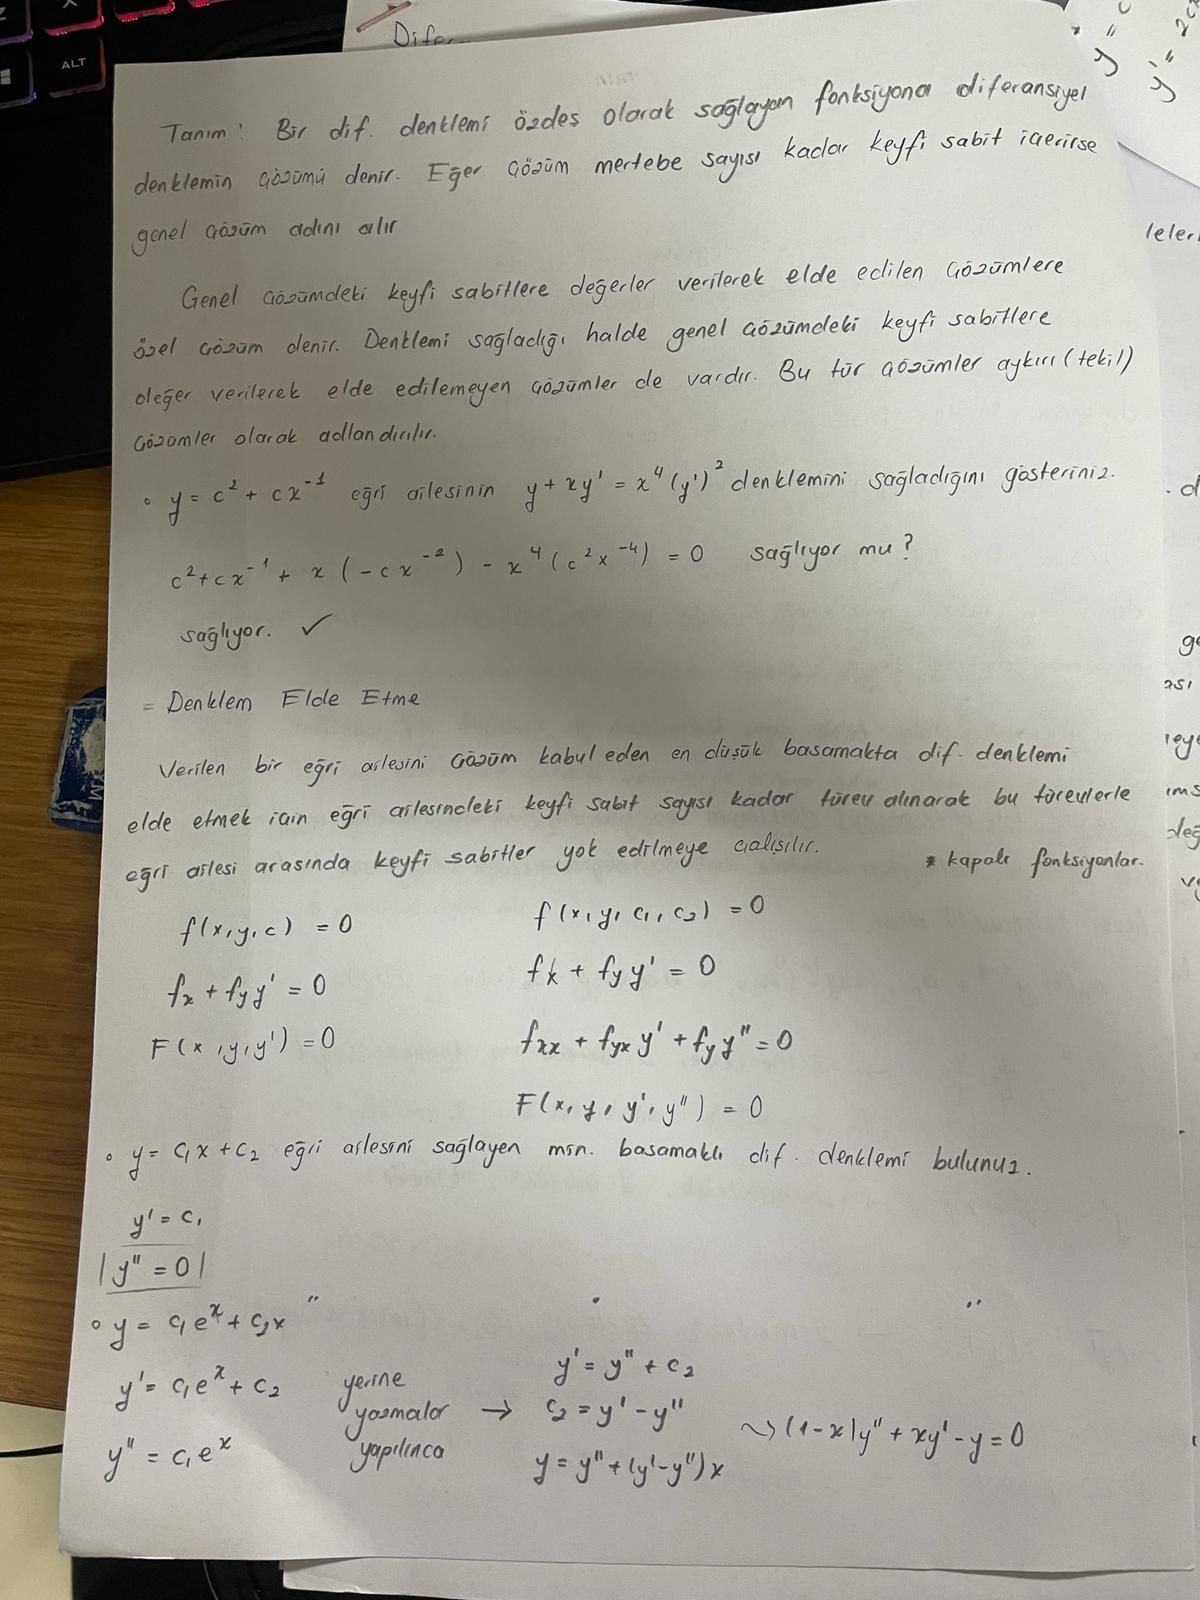 ALT
Difer
Tanım: Bir dif. denklemi özdeş olarak sağlayan fonksiyona diferansiyel
denklemin çözümü denir. Eğer çözüm mertebe sayısı kadar keyfi sabit içerirse
genel çözüm adını alır.
Genel çözümdeki keyfi sabitlere değerler verilerek elde edilen çözümlere
özel çözüm denir. Denklemi sağladığı halde genel çözümdeki keyfi sabitlere
değer verilerek elde edilemeyen çözümler de vardır. Bu tür çözümler aykırı (tekil)
çözümler olarak adlandırılır.
∘ y = c² + cx⁻¹ eğri ailesinin y + xy' = x⁴(y')² denklemini sağladığını gösteriniz.
c² + cx⁻¹ + x(-cx⁻²) - x⁴(c²x⁻⁴) = 0 sağlıyor mu?
sağlıyor. ✓
= Denklem Elde Etme
Verilen bir eğri ailesini çözüm kabul eden en düşük basamakta dif. denklemi
elde etmek için eğri ailesindeki keyfi sabit sayısı kadar türev alınarak bu türevlerle
eğri ailesi arasında keyfi sabitler yok edilmeye çalışılır.
* kapalı fonksiyonlar.
f(x,y,c) = 0 f(x,y,c₁,c₂) = 0
fx + fy y' = 0 fx + fy y' = 0
F(x,y,y') = 0 fxx + fyx y' + fy y'' = 0
F(x,y,y',y'') = 0
∘ y = c₁x + c₂ eğri ailesini sağlayan min. basamaklı dif. denklemi bulunuz.
y' = c₁
|y'' = 0|
∘ y = c₁eˣ + c₂x '' '' ''
y' = c₁eˣ + c₂ yerine y' = y'' + c₂
yazmalar → c₂ = y' - y'' ⤳ (1-x)y'' + xy' - y = 0
y'' = c₁eˣ yapılınca y = y'' + (y'-y'')x